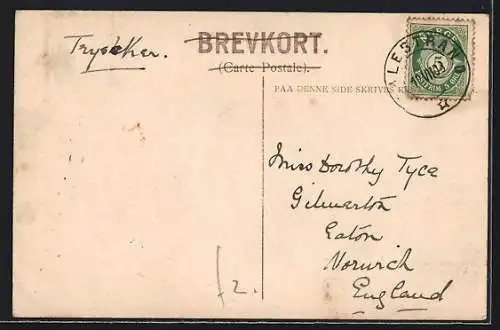 Trykker.
BREVKORT.
(Carte Postale).
PAA DENNE SIDE SKRIVES
NORGE
5
LESTRAND
Miss Dorothy Tyce
Gilmerton
Eaton
Norwich
England
£2.